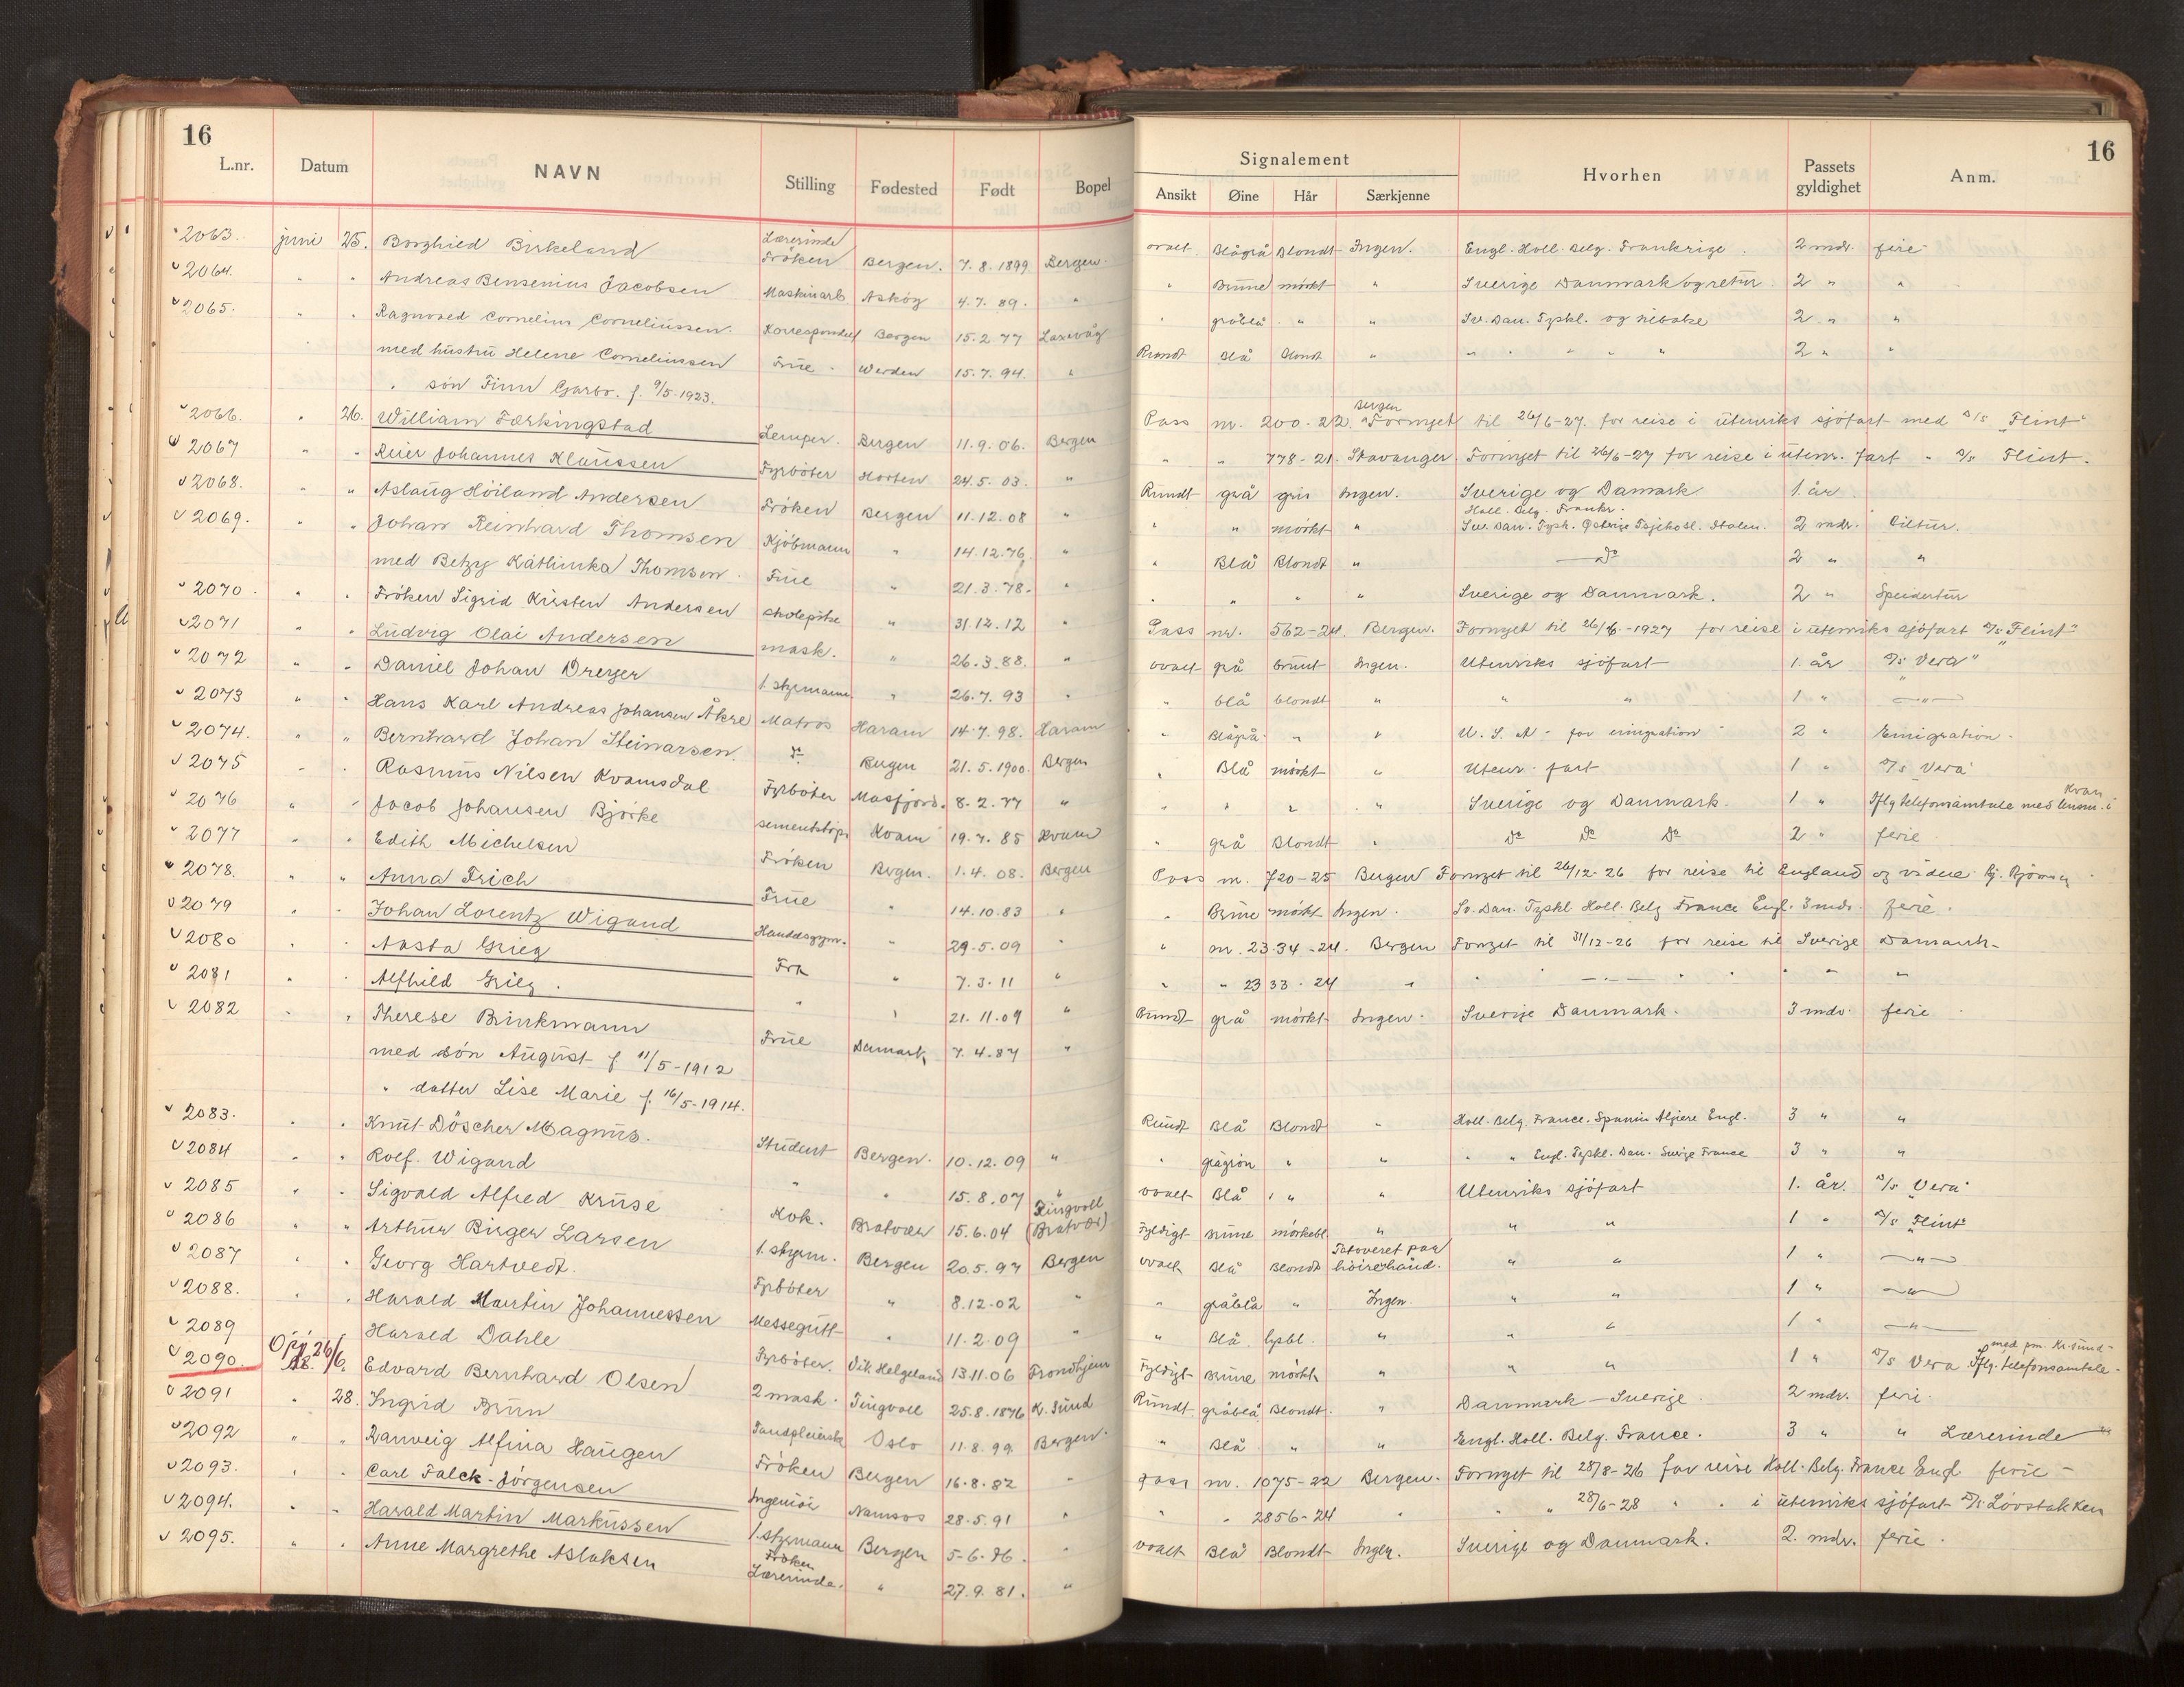 16
L.nr. Datum NAVN Stilling Fødested Født Bopel
2063. juni 25. Borghild Birkeland Lærerinde Fröken Bergen. 7.8.1899 Bergen.
2064. " " Andreas Bensenius Jacobsen Maskinarb Askøy 4.7.89. "
2065. " " Ragnvaed Cornelius Corneliussen. Korrespondent Bergen 15.2.77 Laxevåg
med hustru Helene Corneliussen Frue Werden 15.7.94. "
" sön Finn Garbo. f. 9/5-1923.
2066. " 26. William Færkingstad Lemper. Bergen 11.9.06. Bergen
2067 " " Reier Johannes Klaussen Fyrböter Horten 24.5.03. "
2068. " " Aslaug Höiland Andersen Fröken Bergen 11.12.08 "
2069. " Johan Reinhard Thomsen Kjöbmann " 14.12.76 "
med Betzy Kathinka Thomsen. Frue " 21.3.78. "
2070. " " Fröken Sigrid Kirsten Andersen skolepike " 31.12.12 "
2071 " " Ludvig Olai Andersen mask. " 26.3.88. "
2072 " " Daniel Johan Dreyer 1. styrmann. " 26.7.93 "
2073 " " Hans Karl Andreas Johansen Åkre Matros Haram 14.7.98. Haram
2074. " " Bernhard Johan Steinarsen. Do Bergen 21.5.1900. Bergen
2075 " " Rasmus Nilsen Kvamsdal Fyrböter Masfjord. 8.2.77 "
2076 " " Jacob Johansen Björke sementstöp. Kvam 19.7.85 Kvam
2077 " " Edith Michelsen Fröken Bergen. 1.4.08. Bergen
2078. " " Anna Frich Frue " 14.10.83 "
2079 " " Johan Lorentz Wigand Handelsgym. " 29.5.09 "
2080 " " Aasta Grieg Frk " 7.3.11 "
2081 " " Alfhild Grieg. " " 21.11.09 "
2082 " " Therese Brinkmann Frue Danmark 7.4.87 "
med sön August f. 11/5-1912
" datter Lise Marie f. 16/5-1914.
2083. " " Knut Döscher Magnus. Student Bergen. 10.12.09 "
2084 " " Rolf. Wigand " " 15.8.07 "
2085 " " Sigvald Alfred Kruse Kok. Bratvær 15.6.04 Ringvoll (Bratvær)
2086 " " Arthur Birger Larsen 1. styrm. Bergen 20.5.97 Bergen
2087 " " Georg Hartvedt. Fyrböter " 8.12.02 "
2088. " " Harald Martin Johannessen Messegutt " 11.2.09 "
2089 Harald Dahle Fyrböter. Vik Helgeland 13.11.06 Trondhjem
2090. 26/6. Edvard Bernhard Olsen 2 mask. Tingvoll 25.8.1876 K. Sund
2091 " 28. Ingrid Brun Tandpleierske Oslo 11.8.99. Bergen.
2092 " " Ranveig Alfina Haugen Fröken Bergen 16.8.82 "
2093. " " Carl Falck-Jörgensen Ingeniör Namsos 28.5.91 "
2094. " " Harald Martin Markussen 1. styrmann Bergen 5-6.76. "
2095. " " Anne Margrethe Aslaksen Fröken Lærerinde. " 27.9.81. "
16
Signalement Hvorhen Passets gyldighet Anm.
Ansikt Øine Hår Særkjenne
ovalt. Blågrå Blondt Ingen. Engl. Holl. Belg. Frankrige. 2 mdr. ferie
" Brune mörkt " Sverige Danmark og retur. 2 " "
" gråblå " " Sv. Dan. Tyskl. og tilbake 2 " "
Rundt Blå blondt " " " " " " 2 " "
Pass nr. 200-22. Bergen Fornyet til 26/6-27. for reise i utenriks sjöfart med D/S "Flint"
" " 778-21. Stavanger. Fornyet til 26/6-27 for reise i utenr. fart " D/S Flint.
Rundt grå gris Ingen. Sverige og Danmark 1. år
" " mörkt " Holl. Belg. Frankr. Sve. Dan. Tysk. Östrige Tsjekosl. Italien. 2 mdr. Biltur.
" Blå Blondt " — Do 2 " "
" " " " Sverige og Danmark. 2 " Speidertur
Pass nr. 562-24. Bergen. Fornyet til 26/6-1927 for reise i utenriks sjöfart D/S "Flint"
ovalt grå brunt Ingen. Utenriks sjöfart 1. år D/S "Vera"
" blå blondt " " " 1 " — " —
" Blågrå " " U.S.A. for emigration 2 " Emigration.
" Blå mörkt " Utenr. fart 1 " D/S "Vera"
" " " " Sverige og Danmark. 1 " Iflg telefonsamtale med lensm. i Kvam
" grå Blondt " Do Do Do 2 " ferie
Pass nr. 720-25 Bergen Fornyet til 26/12-26 for reise til England og videre
" Brune mörkt Ingen. Sv. Dan. Tyskl Holl. Belg France Engl. 3 mdr. ferie.
" nr. 2334-24. Bergen Fornyet til 31/12-26 for reise til Sverige Danmark-
" " 2333-24 " " " — " — " " " "
Rundt grå mörkt Ingen. Sverige Danmark. 3 mdr. ferie
Rundt Blå Blondt " Holl. Belg. France. Spania Algiere Engl. 3 " "
" grågrön " " " " Engl. Tyskl. Dan. Sverige France 3 " "
ovalt Blå " " Utenriks sjöfart 1. år. D/S "Vera"
Fyldigt Brune mörkebl. " " " 1 " D/S "Flint"
ovalt Blå Blondt Tatoveret paa höire hånd. " " 1 " — " —
" gråblå " Ingen. " " 1 " — " —
" Blå. lysbl. " " " 1 " — " —
Fyldigt Brune mörkt " " " 1 " D/S Vera Iflg. telefonsamtale med pm. Kr.sund
Rundt. gråblå Blondt. " Danmark — Sverige. 2 mdr. ferie.
" Blå " " Engl. Holl. Belg. France. 3 " " Lærerinde
Pass nr. 1075-22 Bergen. Fornyet til 28/8-26 for reise Holl. Belg. France Engl. ferie
" " 2856-24 " " " 28/6-28 " " i utenriks sjöfart D/S Lövstakken
ovalt Blå Blondt Ingen. Sverige og Danmark. 2. mdr. ferie.